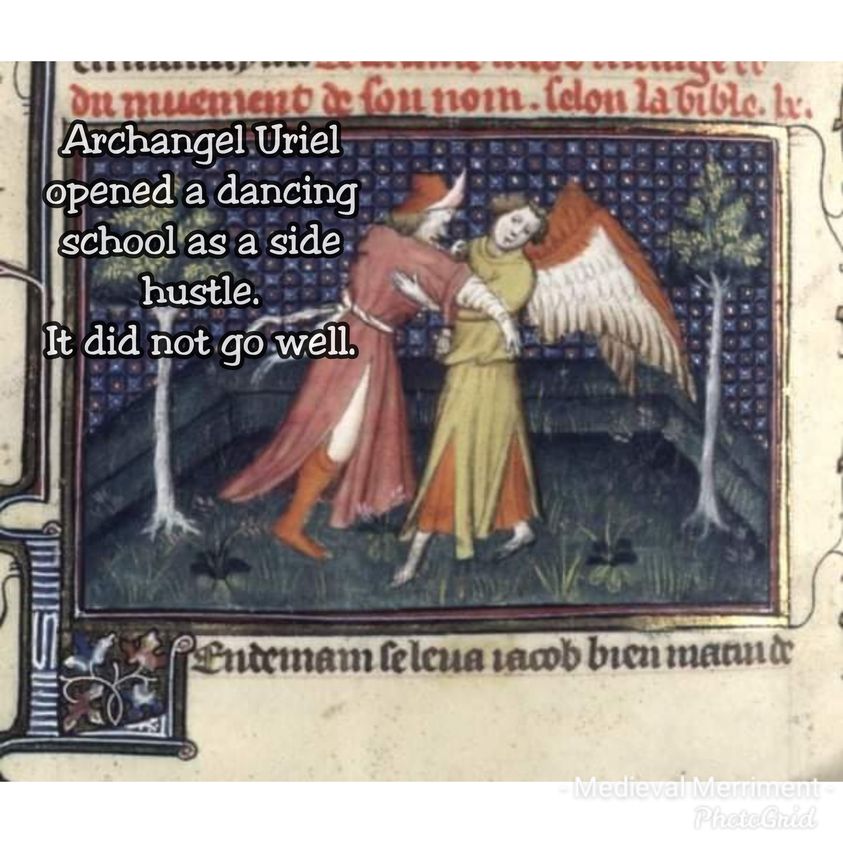 du muement de son nom. selon la bible. lx.
Archangel Uriel
opened a dancing
school as a side
hustle.
It did not go well.
Endemain se leva iacob bien matin et
- Medieval Merriment -
PhotoGrid